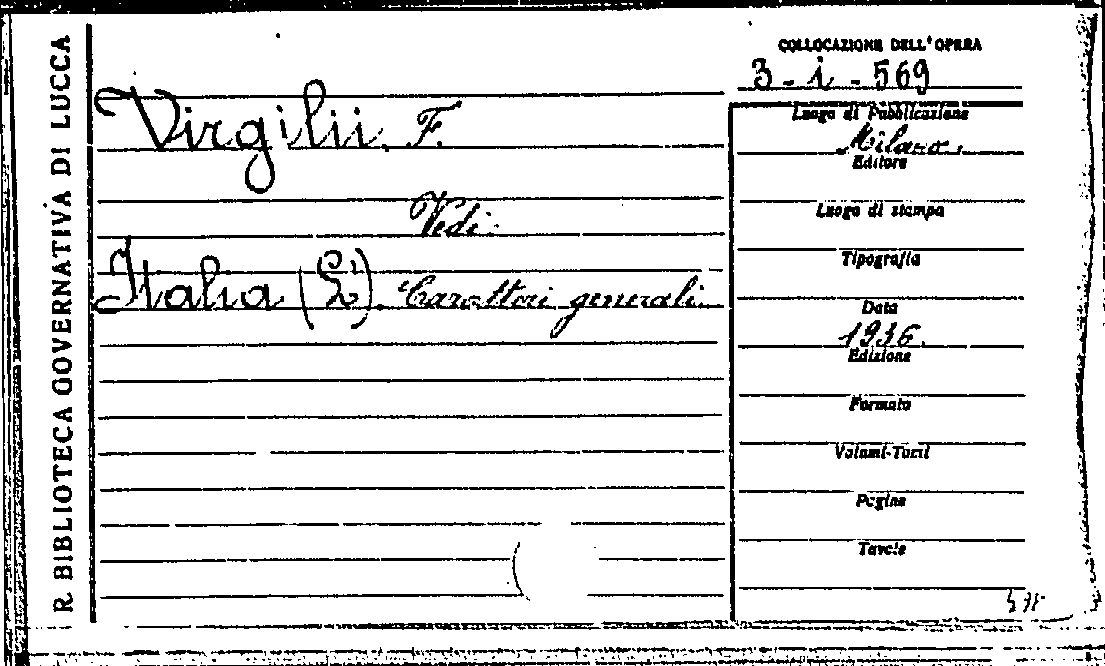 R BIBLIOTECA GOVERNATIVA DI LUCCA
COLLOCAZIONE DELL'OPERA
3 - i - 569
Virgilii F.
Vedi:
Italia (L'). Caratteri generali.
Luogo di Pubblicazione
Milano.
Editore
Luogo di stampa
Tipografia
Data
1936.
Edizione
Formato
Volumi-Tomi
Pagine
Tavole